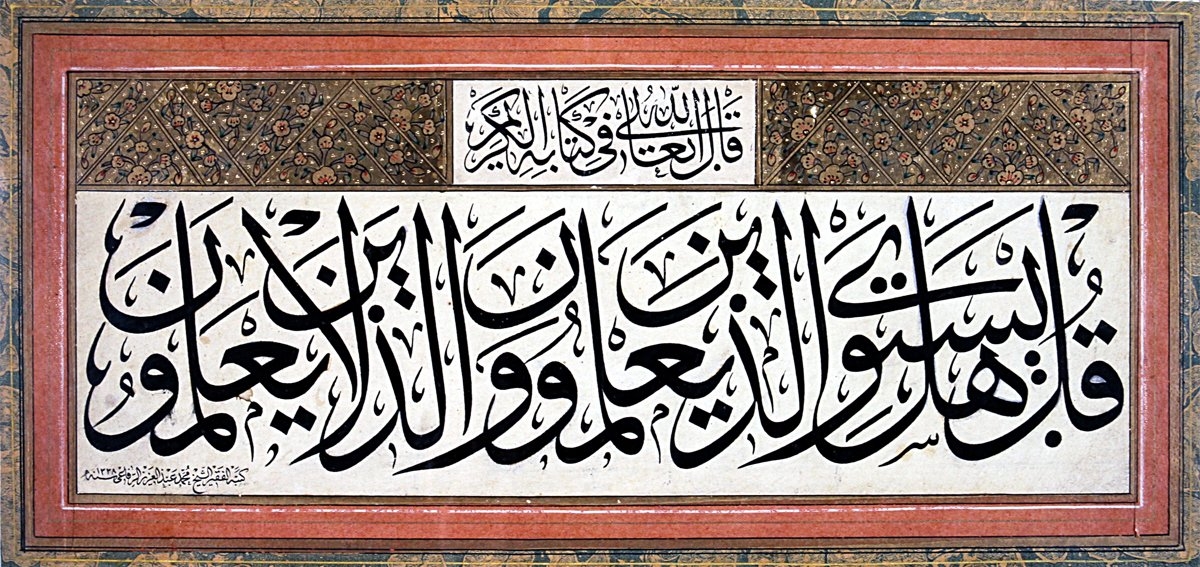 قال الله تعالى في كتابه الكريم
قُل هل يستوي الذين يعلمون والذين لا يعلمون
كتبه الفقير الشيخ محمد عبد العزيز الرفاعي سنه ١٣٣٨